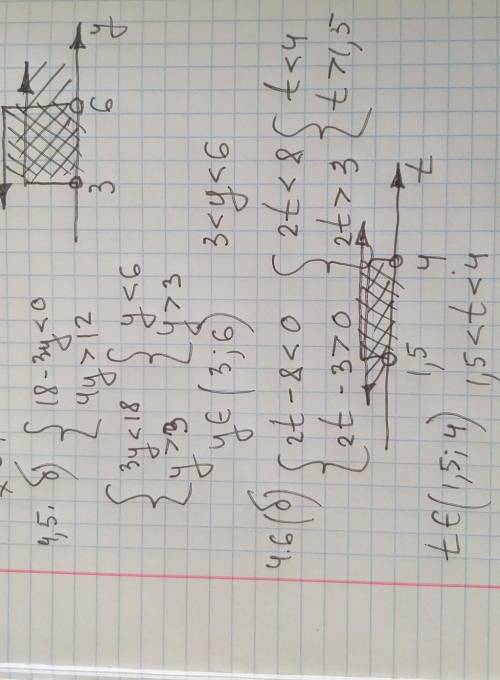 4,5. б) { 18 - 3y < 0
4y > 12
{ 3y < 18
y > 3
{ y < 6
y > 3
3 6 y
y ∈ (3; 6)
3 < y < 6
4.6 (б)
{ 2t - 8 < 0
2t - 3 > 0
{ 2t < 8
2t > 3
{ t < 4
t > 1,5
1,5 4 t
t ∈ (1,5; 4)
1,5 < t < 4